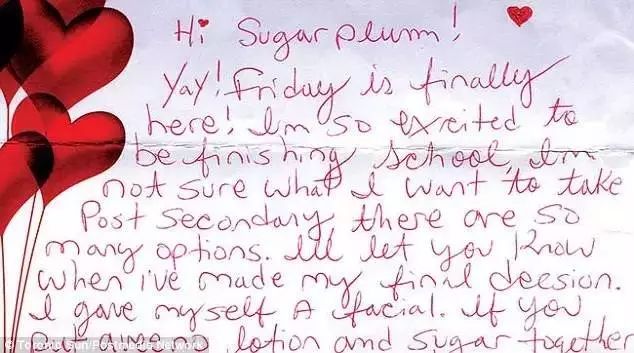 Hi Sugarplum!
Yay! Friday is finally
here! Im so excited to
be finishing school, Im
not sure what I want to take
Post Secondary there are so
many options. Ill let you know
when i've made my final decsion.
I gave myself A facial. If you
lotion and Sugar together
© Toronto Sun/Postmedia Network